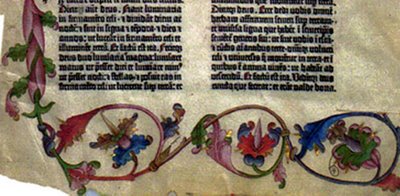 deus. Fiant luminaria
in firmamento celi · et dividant diem ac
et sint in signa et tempora · et dies et
in firmamento celi et
illuminent terra. Et factum est ita. Fecitque
deus duo luminaria magna: luminare
ut preesset diei et luminare
ut preesset nocti et stellas · et posuit eas in
celi ut lucerent super terra: et
deus. Ecce dedi vobis omne
herbam afferentem semen super terram
et universa ligna que habent in
generis sui: ut sint vobis in esca
et cunctis animantibus terre · omnique volucri
celi et universis que moventur in terra · et
quibus est anima vivens: ut habeant ad
vescendum. Et factum est ita. Viditque deus
cuncta que fecerat: et erant valde bona.